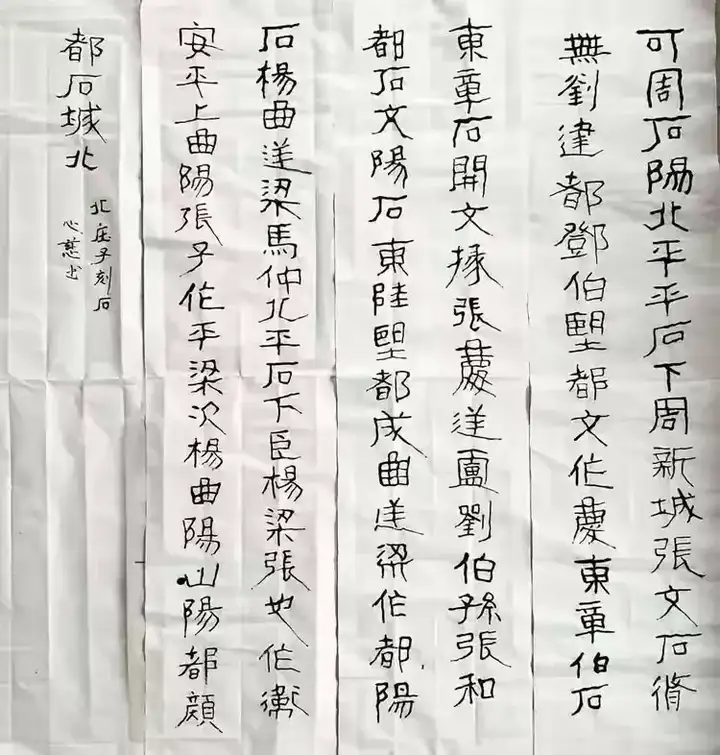 可周石陽北平平石下周新城張文石脩
無劉建都鄧伯朢都文作慶東章伯石
東章石開文掾張慶送盧劉伯孫張和
都石文陽石東陸朢都成曲送梁作都陽
石楊曲送梁馬仲北平石下臣楊梁張作衛
安平上曲陽張子作平梁次楊曲陽山陽都顏
都石城北
北庄子刻石
心慧书